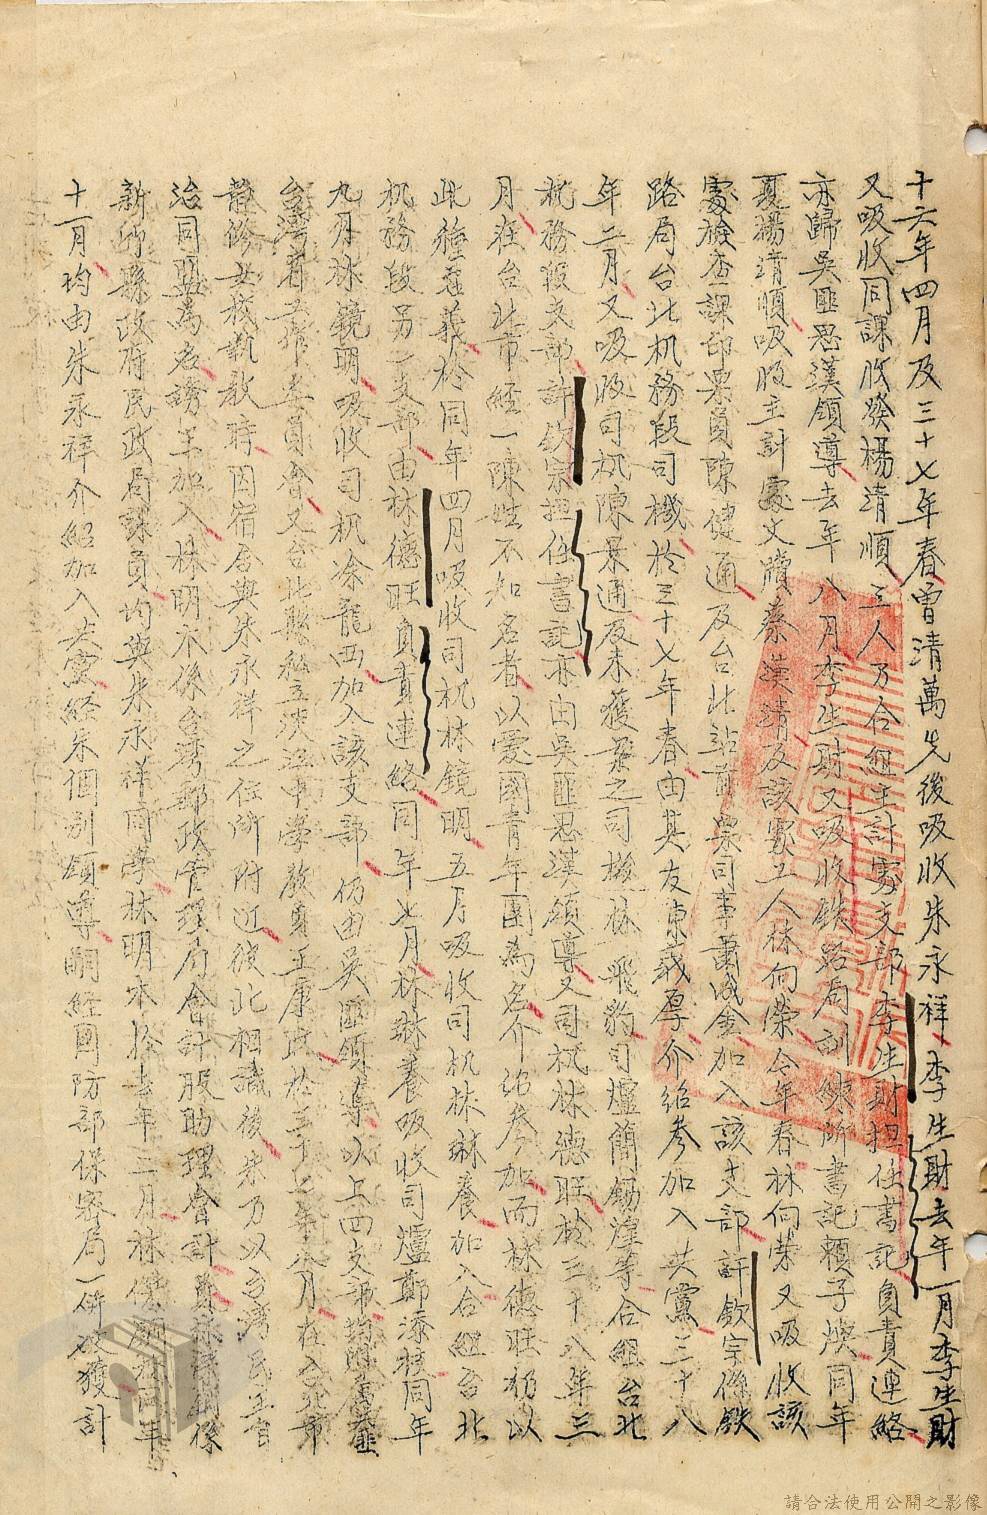 十六年四月及三十七年春曾清萬先後吸收朱永祥李生財去年一月李生財
又吸收同課收發楊清順三人乃合組主計處支部李生財担任書記負責連絡
亦歸吳匪思漢領導去年八月李生財又吸收鉄路局訓練所書記賴子煐同年
夏楊清順吸收主計處文牘蔡漢清及該處工人林向榮今年春林向榮又吸收該
處檢查課印票員陳健通及台北站前票司事蕭成金加入該支部許欽宗係鉄
路局台北机務段司機於三十七年春由其友陳義厚介紹參加入共黨三十八
年二月又吸收司机陳景通及未獲案之司機林飛豹司爐簡錫湟等合組台北
机務段支部許欽宗担任書記亦由吳匪思漢領導又司机林德旺於三十八年三
月在台北市經一陳姓不知名者以愛國青年團為名介紹參加而林德旺仍以
此種意義於同年四月吸收司机林鏡明五月吸收司机林琳養加入合組台北
机務段另一支部由林德旺負責連絡同年七月林琳養吸收司爐鄭添枝同年
九月林鏡明吸收司机涂龍西加入該支部仍由吳匪領導以上四支部均附屬匪
台灣省工作委員會又台北縣私立淡江中學教員王康政於三十七年八月在台北市
靜修女校執教時因宿舍與朱永祥之住所附近彼此相識後朱乃以台灣民主自
治同盟為名誘王加入林明水係台灣郵政管理局會計股助理會計員林傑鋼係
新竹縣政府民政局課員均與朱永祥同學林明水於去年三月林傑鋼於同年
十一月均由朱永祥介紹加入共黨經朱個別領導嗣經國防部保密局一併破獲計
請合法使用公開之影像